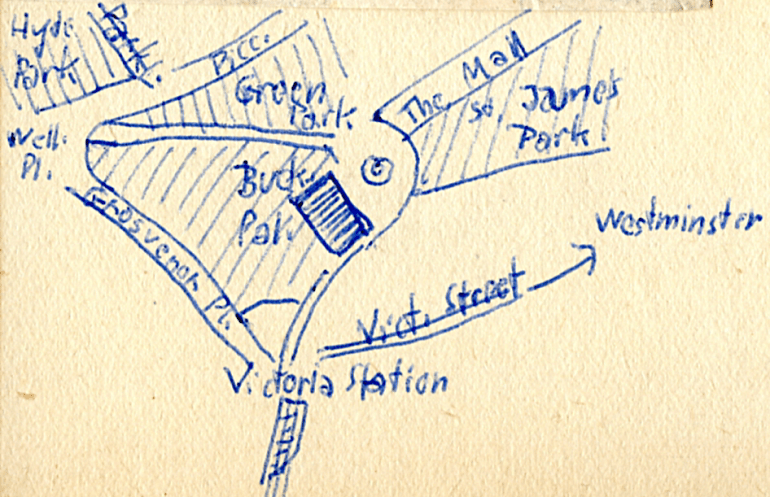 Hyde
Park.
Park.
Picc.
Green
Park
The Mall
St. James
Park
Well.
Pl.
Buck.
Pal.
Grosvenor Pl.
Westminster
Vict. Street
Victoria Station